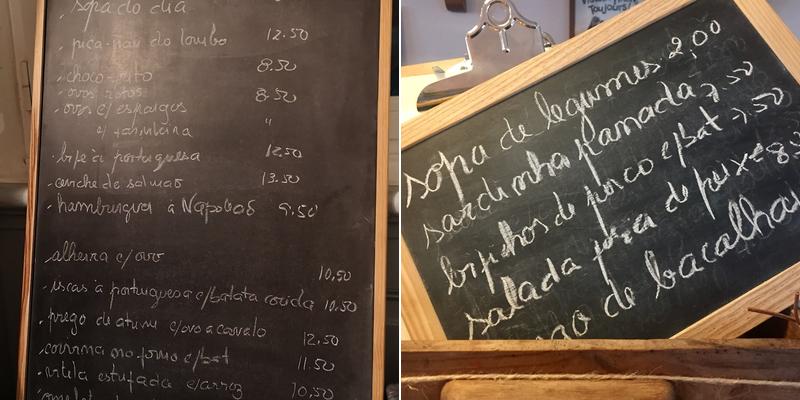 sopa do dia
. pica-pau do lombo 12.50
. choco frito 8.50
. ovos rotos 8.50
. ovos c/ espargos
e farinheira "
. bife à portuguesa 12.50
. ceviche de salmão 13.50
. hambúrguer à Napoleão 9.50
alheira c/ovo 10,50
. iscas à portuguesa c/batata cozida 10,50
. prego de atum c/ovo a cavalo 12.50
. corvina no forno c/bat 11.50
. vitela estufada c/arroz 10,50
Toujours!
sopa de legumes 2,00
sardinha panada 7.50
bifinhos de porco c/bat 7.50
salada fria de peixe 8,
de bacalhau